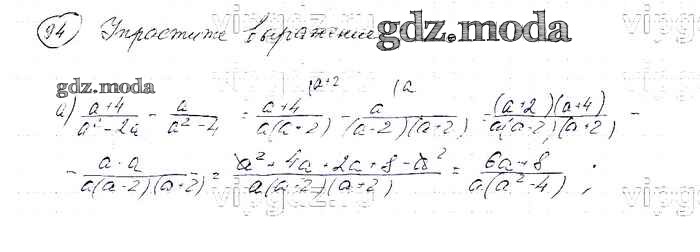 94 Упростите выражение gdz.moda
gdz.moda
а) (a+4)/(a²-2a) - a/(a²-4) = (a+4)/(a(a-2)) |a+2 - a/((a-2)(a+2)) |a = ((a+2)(a+4))/(a(a-2)(a+2)) -
- (a·a)/(a(a-2)(a+2)) = (a²+4a+2a+8-a²)/(a(a-2)(a+2)) = (6a+8)/(a(a²-4)) ;